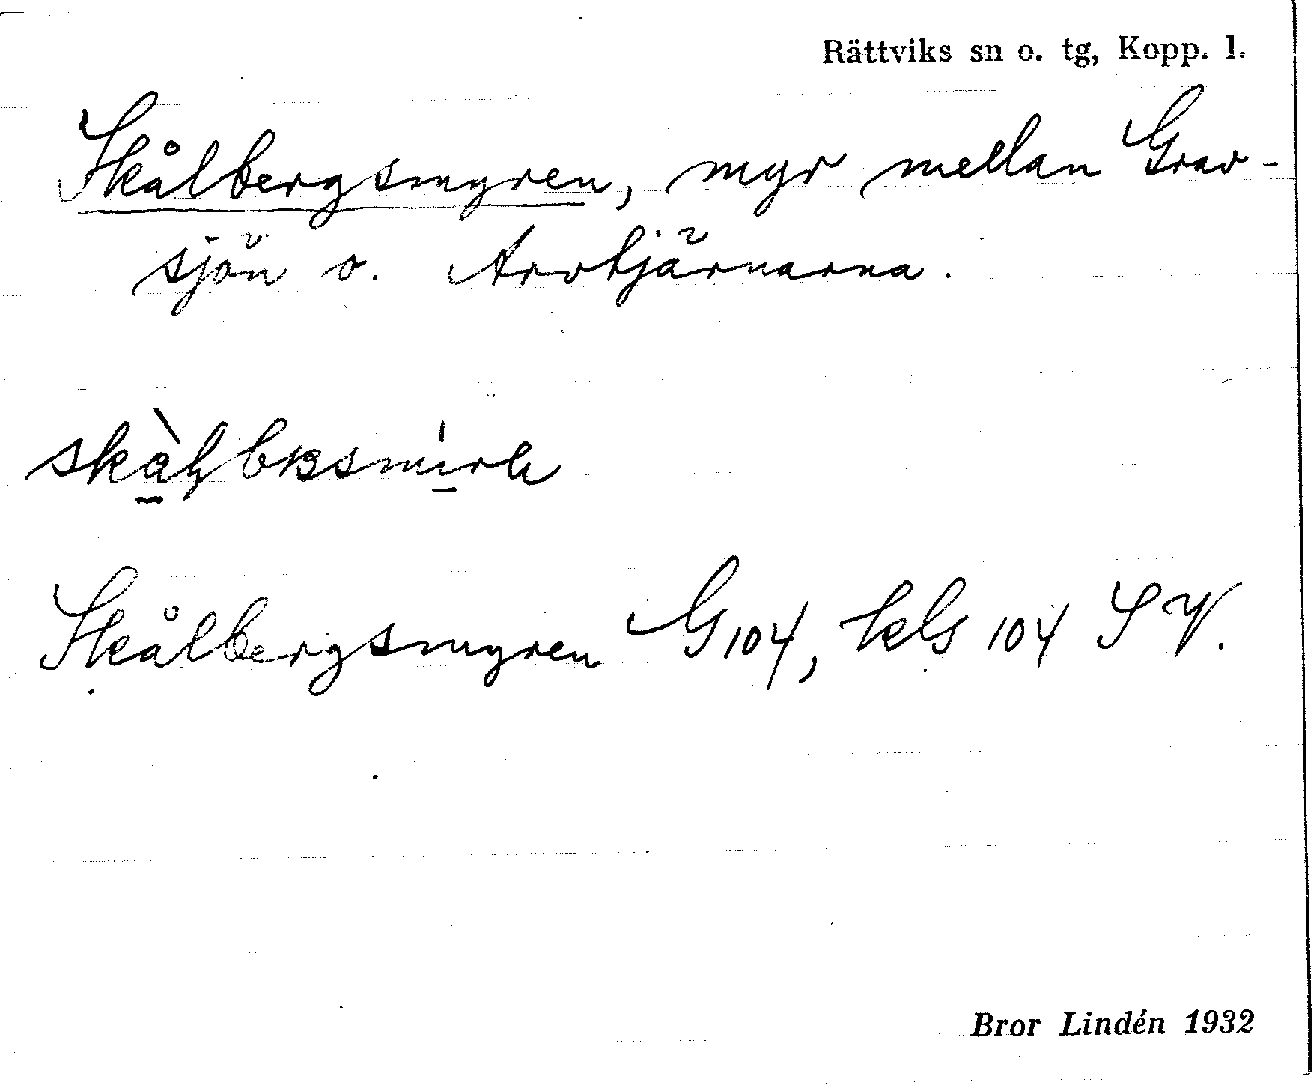 Rättviks sn o. tg, Kopp. l.
Skålbergsmyren, myr mellan Grav-
sjön o. Arvtjärnarna.
Skålbergsmyren G104, kbs 104 S V.
Bror Lindén 1932